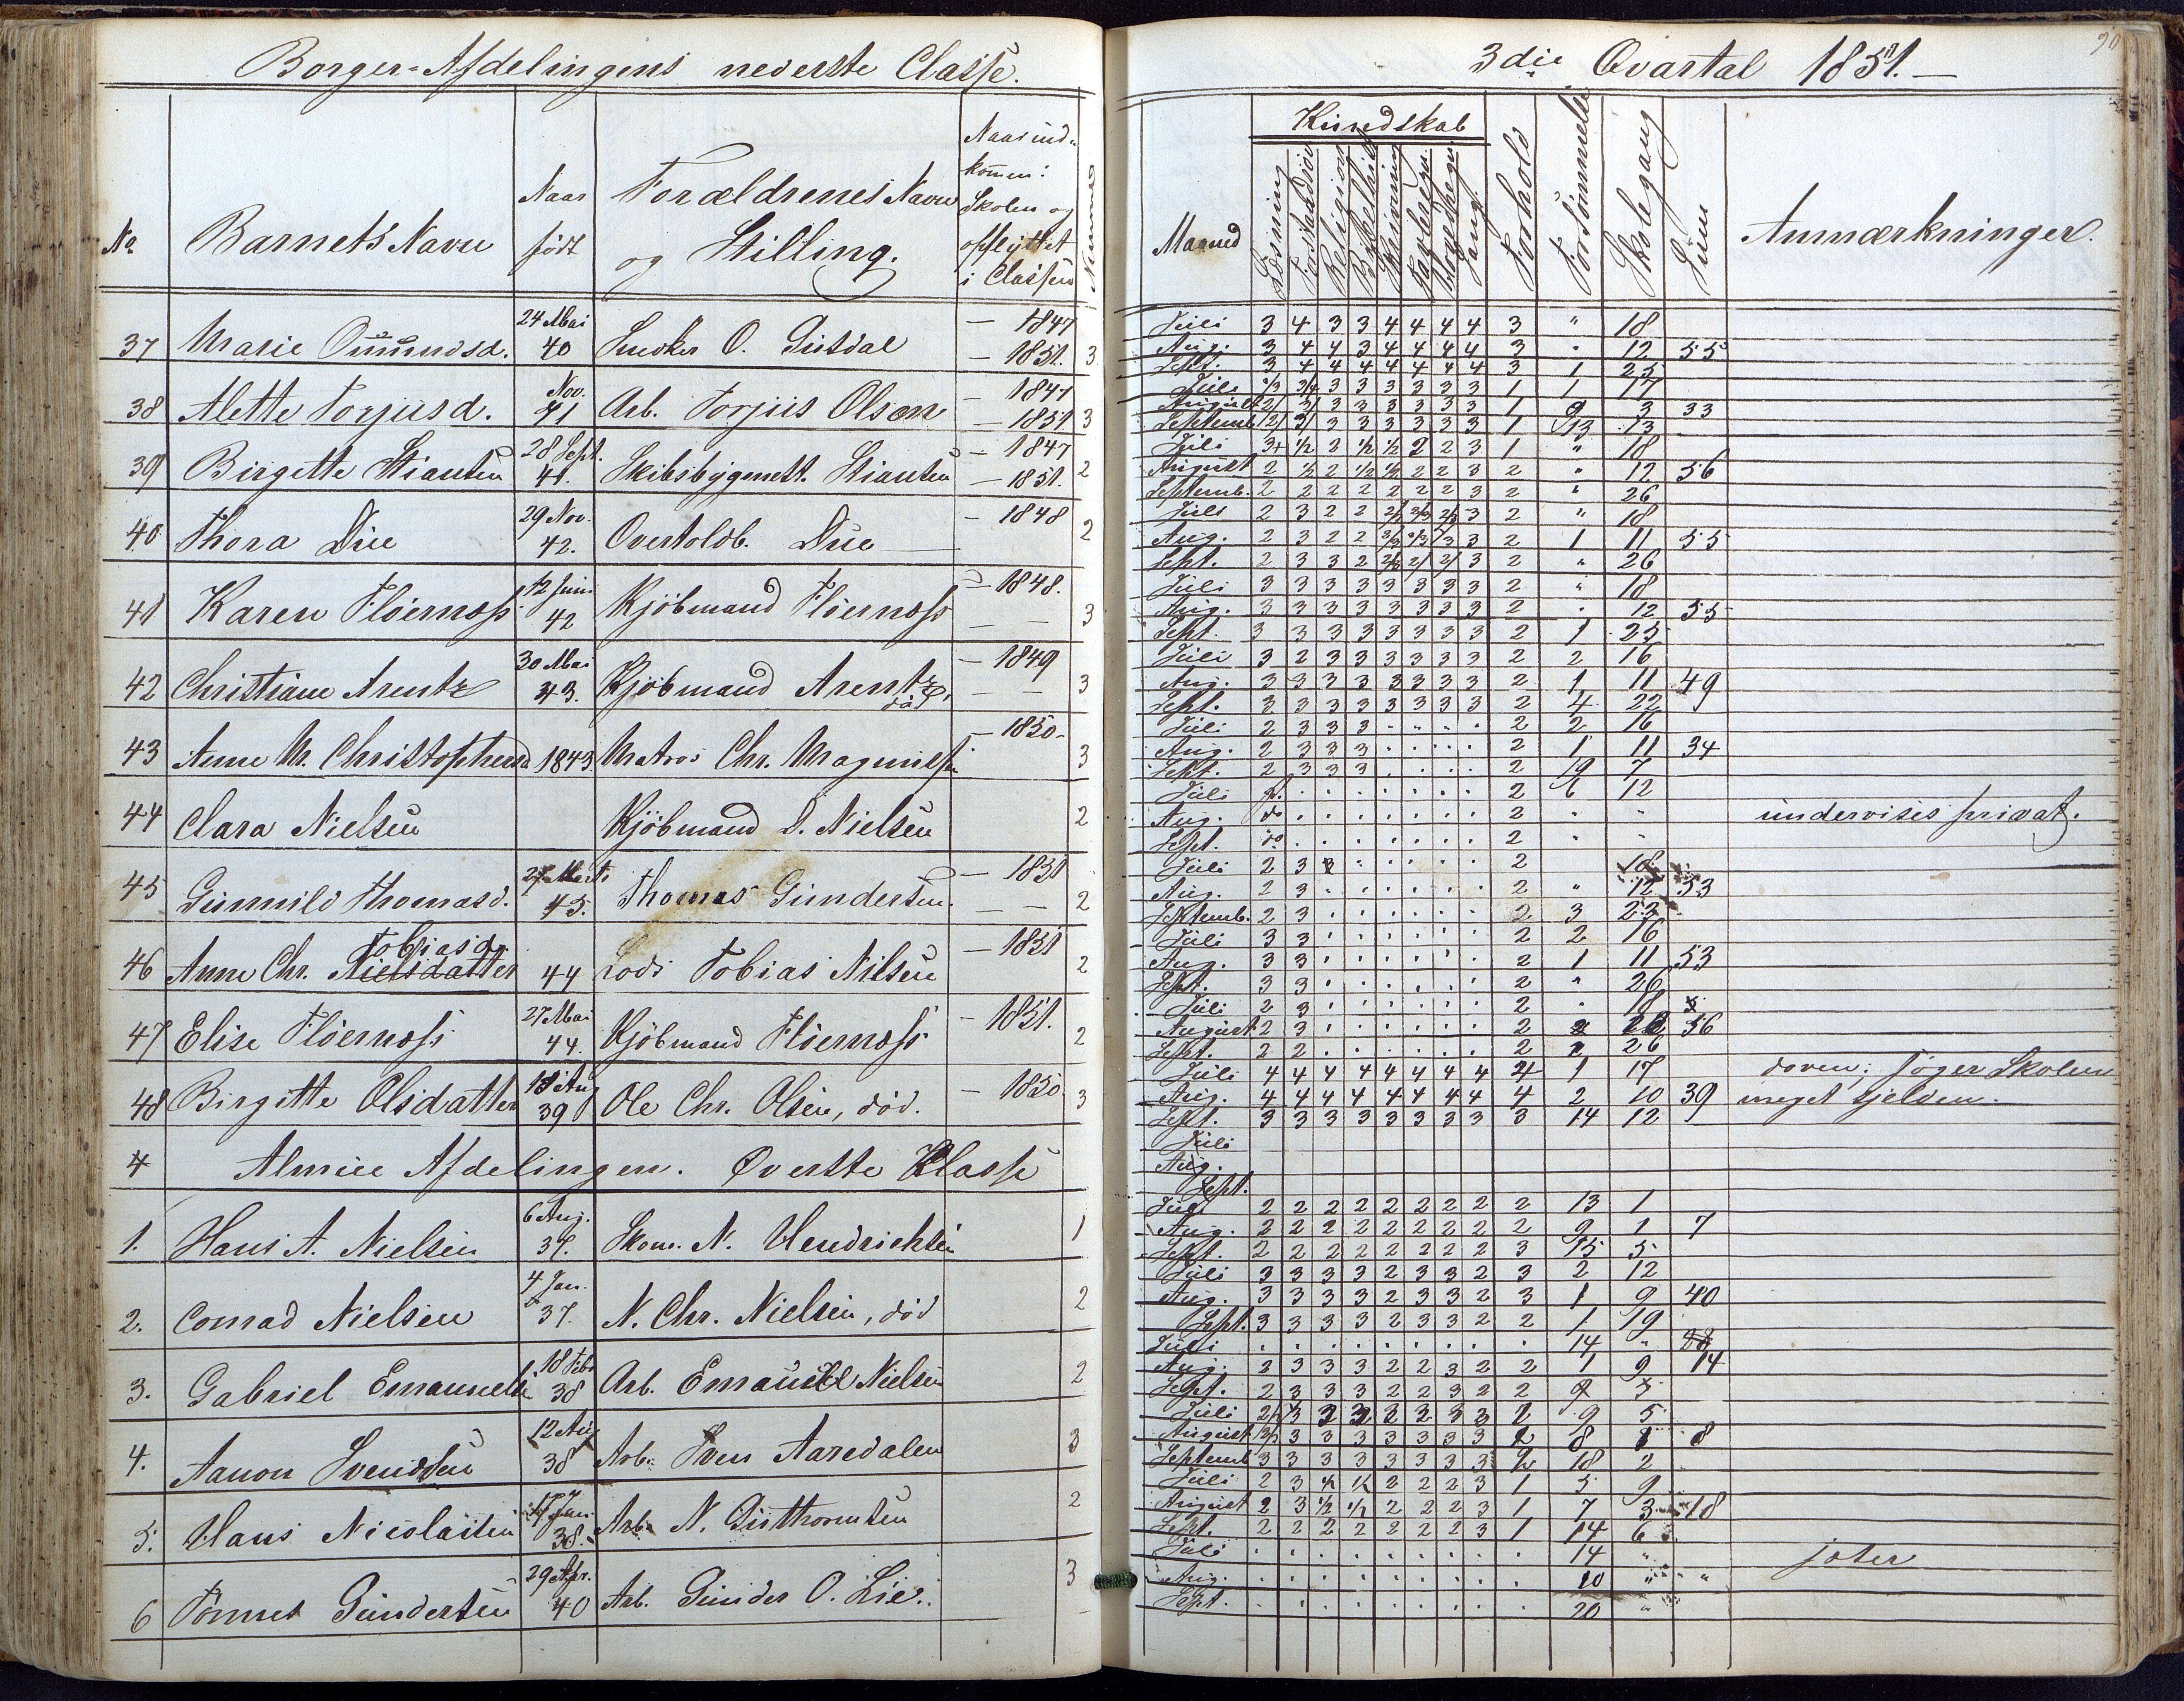 Borger-Afdelingens nederste Classe.
No
Barnets Navn
Naar født
Forældrenes Navn og Stilling.
Naar ind-
kommen i
Skolen og
opflyttet
i Classen
Nummer
37 Marie Omundsd. 24 Mai 40 Snedker O. 1847 1851. 3
38 Alette Torjusd. Nov. 41 Arb. Torjus Olsen 1847 1851 3
39 Birgitte Stiansen 28 Sept. 41. Skibsbygmest. Stiansen 1847 1851. 2
40 Thora Due 29 Nov. 42. Overtoldb. Due 1848 2
41 Karen Fløernæss 12 Juni 42 Kjöbmand Fløernæss 1848. 3
42 Christiane Arentz 30 Mai 43. Kjöbmand Arentz, død 1849 3
43 Anne M. Christophersd 1843. Matros Chr. Magnussen 1850 3
44 Clara Nielsen Kjöbmand D. Nielsen 2
45 Gunnild Thomasd. 27 Marts 45. Thomas Gundersen. 1851 2
46 Anne Chr. Nielsdatter Tobiasd. 44 Lods Tobias Nilsen 1851 2
47 Elise Fløernæss 27 Mai 44. Kjöbmand Fløernæss 1851. 2
48 Birgitte Olsdatter 18 Aug 39 Ole Chr. Olsen, död. 1850. 3
4 Almue Afdelingen. Øverste Klasse
1. Hans A. Nielsen 6 Aug. 37. Skom. N. Hendrichsen 1
2. Conrad Nielsen 4 Jan. 37. N. Chr. Nielsen, död 2
3. Gabriel Emanuels 18 Febr 38 Arb. Emanuel Nielsen 2
4. Aanon Svendsen 12 Aug 38 Arb. Sven Aaredalen 3
5. Hans Nicolaisen 17 Jan. 38. Arb. N. Guttormsen 2
6 Tönnes Gundersen 29 Apr. 40 Arb. Gunder O. Lie. 3
3die Qvartal 1851.
90
Maaned
Kundskab
Læsning
Forstandsöv
Religion
Skrivning
Tavleregn.
Hovedregn.
Sang.
Forhold
Forsömmelse
Skolegang
Sum
Anmærkninger.
Juli 3 4 3 3 4 4 4 4 3 " 18
Aug. 3 4 4 3 4 4 4 4 3 " 12 55
Sept. 3 4 4 4 4 4 4 4 3 1 25
Juli 2/3 3/4 3 3 3 3 3 3 1 1 17
August 2/ 3/ 3 3 3 3 3 3 1 9 3 33
Septemb. 2/ 3/ 3 3 3 3 3 3 1 13 13
Juli 3+ 1/2 2 1/2 1/2 2 2 3 1 " 18
August 2 1/2 2 1/2 1/2 2 2 3 2 " 12 56
Septemb. 2 2 2 2 2 2 2 3 2 " 26
Juli 2 3 2 2 2/3 2/3 2/3 3 2 " 18
Aug. 2 3 2 2 2/3 2/3 3 2 1 11 55
Sept. 2 3 3 2 2/3 2/ 2/ 3 2 " 26
Juli 3 3 3 3 3 3 3 3 2 " 18
Aug. 3 3 3 3 3 3 3 3 2 " 12 55
Sept. 3 3 3 3 3 3 3 3 2 1 25
Juli 3 2 3 3 3 3 3 3 2 2 16
Aug. 3 3 3 3 3 3 3 3 2 1 11 49
Sept. 3 3 3 3 3 3 3 3 2 4 22
Juli 2 3 3 3 2 2 16
Aug. 2 3 3 3 2 1 11 34
Sept. 2 3 3 3 2 19 7
Juli 2 6 12
Aug. do 2 " " undervises privat.
Sept. do 2 " "
Juli 2 3 3 2 18
Aug. 2 3 2 " 12 53
Septemb. 2 3 2 3 23
Juli 3 3 2 2 16
Aug. 3 3 2 1 11 53
Sept. 3 3 2 " 26
Juli 2 3 2 " 18
August 2 3 2 12 56
Sept. 2 2 2 26
Juli 4 4 4 4 4 4 4 4 4 1 17 doven; søger Skolen
Aug. 4 4 4 4 4 4 4 4 4 2 10 39 meget sjelden.
Sept. 3 3 3 3 3 3 3 3 3 14 12
Juli
Aug.
Sept.
Juli 2 2 2 2 2 2 2 2 2 13 1
Aug. 2 2 2 2 2 2 2 2 2 9 1 7
Sept. 2 2 2 2 2 2 2 2 3 15 5
Juli 3 3 3 3 2 3 3 2 3 2 12
Aug. 3 3 3 3 2 3 3 2 3 1 9 40
Sept. 3 3 3 3 2 3 3 2 2 1 19
Juli 14 "
Aug. 2 3 3 3 2 2 3 2 2 1 9 14
Sept. 2 3 3 3 2 2 3 2 2 5
Juli 9 5
August 3 3 3 3 3 3 3 2 8 1 8
Septemb 3 3 3 3 3 3 3 3 2 18 2
Juli 2 3 1/2 1/2 2 2 2 3 1 5 9
August 2 3 1/2 1/2 2 2 2 3 1 7 3 18
Sept. 2 2 2 2 2 2 2 3 1 14 6
Juli 14 " joter
Aug. 10 " "
Sept. 20 "